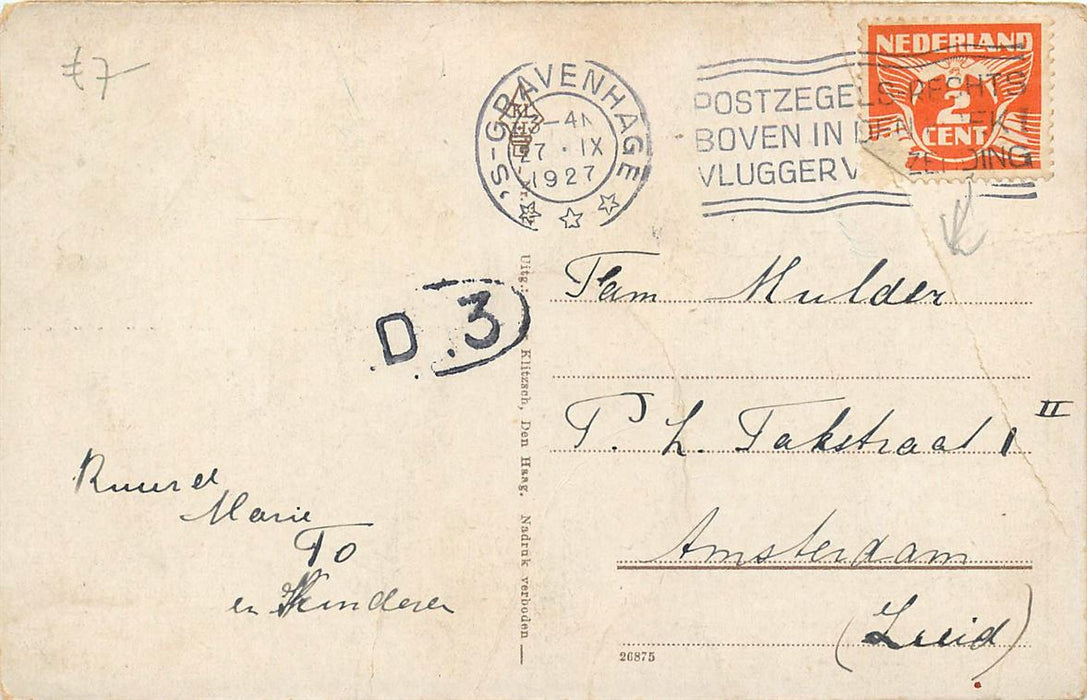 £7
'S-GRAVENHAGE
27 · IX
1927
POSTZEGELS RECHTS
BOVEN IN DEN
VLUGGER
NEDERLAND
2
CENT
D.3
Fam Mulder
P. L. Takstraat 1 II
Amsterdam
(Zuid)
Marie
To
en Kinderen
Klitzsch, Den Haag. Nadruk verboden
26875